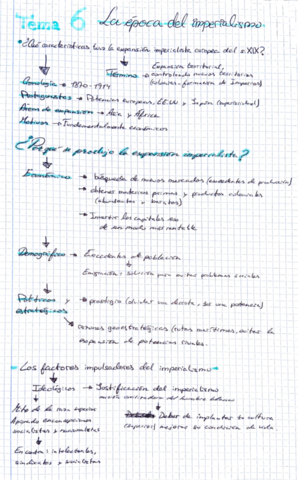 Tema 6 La época del imperialismo
• ¿Qué características tuvo la expansión imperialista europea del s.XIX?
Término → Expansión territorial,
controlando nuevos territorios
(colonias - formación de Imperios)
Cronología → 1870 - 1914
Protagonistas → Potencias europeas, EE.UU y Japón
Áreas de expansión → Asia y África
Motivos → Fundamentalmente económicos
¿Por qué se produjo la expansión imperialista?
Económico → búsqueda de nuevos mercados (excedentes de producción)
→ obtener materias primas y productos coloniales
(abundantes y baratos)
→ Invertir los capitales
de un modo más rentable
Demográfico → Excedentes de población
Emigración: solución para evitar problemas sociales
Políticos y → prestigio (olvidar una derrota, ser una potencia)
estratégicos
→ razones geoestratégicas (rutas marítimas, evitar la
expansión de potencias rivales.
- Los factores impulsadores del imperialismo
Ideológicos → Justificación del imperialismo
misión civilizadora del hombre blanco
Deber de implantar su cultura
(superior) mejorar su condición de vida
En contra: intelectuales,
sindicatos y socialistas